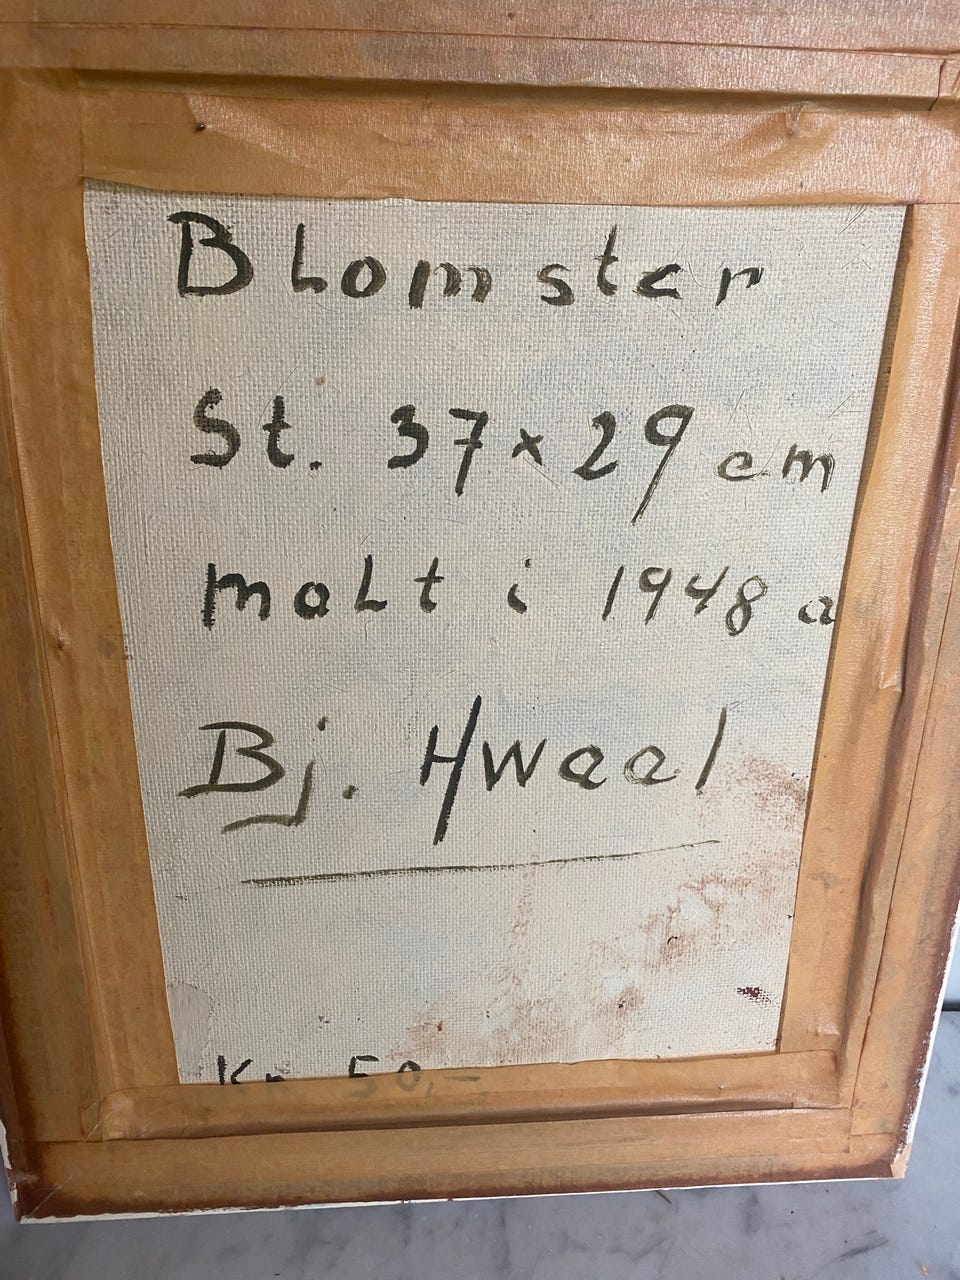 Blomster
St. 37x29 cm
malt i 1948 a
Bj. Hwaal
Kr. 50,-